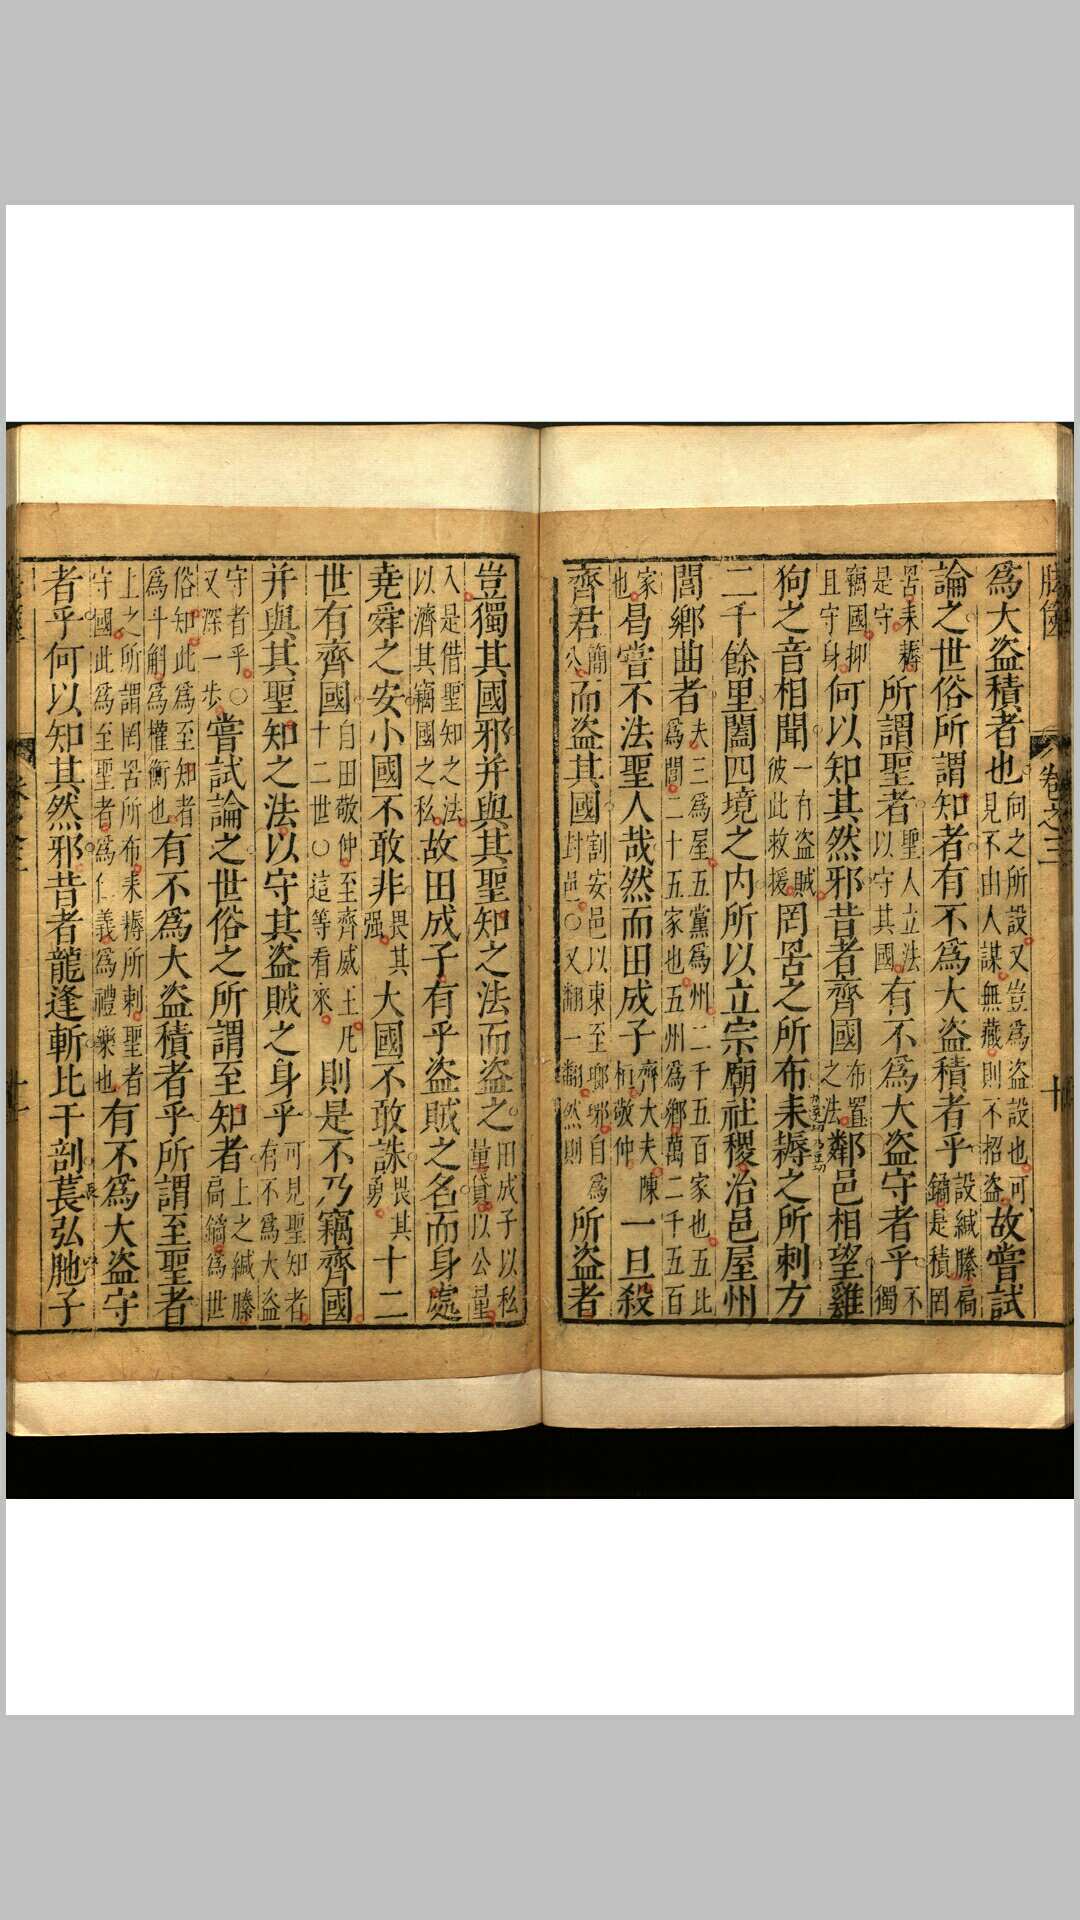 胠篋 卷之三 十
爲大盜積者也 向之所設又豈爲盜設也可見不由人謀無藏則不招盜 故嘗試
論之世俗所謂知者有不爲大盜積者乎 設緘縢扃鐍是積罔
罟耒耨是守 所謂聖者 聖人立法以守其國 有不爲大盜守者乎 不獨
竊國抑且守身 何以知其然邪昔者齊國 布置之法 鄰邑相望雞
狗之音相聞 一有盜賊彼此救援 罔罟之所布耒耨之所刺方
二千餘里闔四境之内所以立宗廟社稷治邑屋州
閭鄉曲者 夫三爲屋五黨爲州二千五百家也五比爲閭二十五家也五州爲鄉萬二千五百
家也 曷嘗不法聖人哉然而田成子 齊大夫陳桓敬仲 一旦殺
齊君 簡公 而盜其國 割安邑以東至瑯琊自爲封邑○又翻一翻然則 所盜者
豈獨其國邪并與其聖知之法而盜之 田成子以私量貸以公量
入是借聖知之法以濟其竊國之私 故田成子有乎盜賊之名而身處
堯舜之安小國不敢非 畏其强 大國不敢誅 畏其勇 十二
世有齊國 自田敬仲至齊威王凡十二世○這等看來 則是不乃竊齊國
并與其聖知之法以守其盜賊之身乎 可見聖知者有不爲大盜
守者乎○又深一步 嘗試論之世俗之所謂至知者 上之緘縢扃鐍爲世
俗知此爲至知者爲斗斛爲權衡也 有不爲大盜積者乎所謂至聖者
上之所謂罔罟所布耒耨所刺聖者守國此爲至聖者爲仁義爲禮樂也 有不爲大盜守
者乎何以知其然邪昔者龍逢斬比干剖萇弘胣子